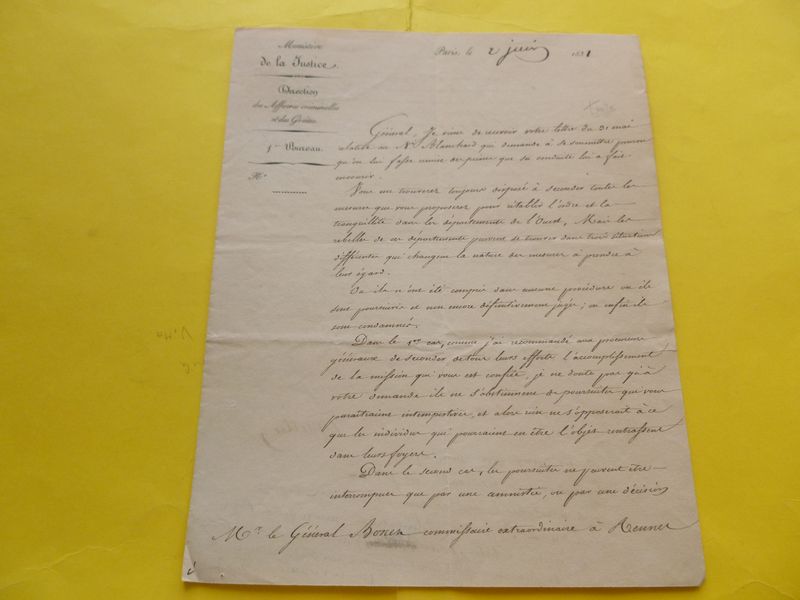 Ministère
de la Justice.
Direction
des Affaires criminelles
et des Grâces.
1er Bureau.
No
Paris, le 2 juin 1831
Général, Je viens de recevoir votre lettre du 31 mai
relative au Blanchard qui demande à se soumettre pourvu
qu'on lui fasse remise des peines que sa conduite lui a fait
encourir.
Vous me trouverez toujours disposé à seconder toutes les
mesures que vous proposerez pour rétablir l'ordre et la
tranquillité dans les départements de l'Ouest. Mais les
rebelles de ces départements peuvent se trouver dans trois situations
différentes qui changent la nature des mesures à prendre à
leur égard.
Ou ils n'ont été compris dans aucune procédure ou ils
sont poursuivis et non encore définitivement jugés; ou enfin ils
sont condamnés.
Dans le 1er cas, comme j'ai recommandé aux procureurs
généraux de seconder de tous leurs efforts l'accomplissement
de la mission qui vous est confiée, je ne doute pas qu'à
votre demande ils ne s'abstiennent de poursuites qui vous
paraîtraient intempestives, et alors rien ne s'opposerait à ce
que les individus qui pourraient en être l'objet rentrassent
dans leurs foyers.
Dans le second cas, les poursuites ne peuvent être
interrompues que par une amnistie, ou par une décision
Mr. le Général Bonet commissaire extraordinaire à Rennes